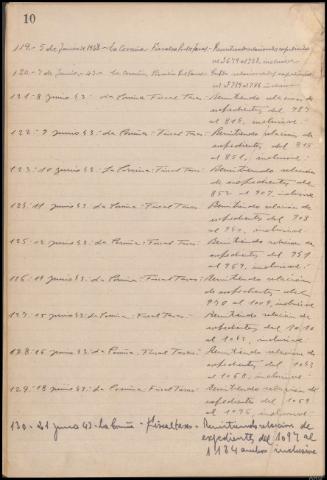 10
119 - 5 de junio de 1943 - La Coruña
120 - 7 de junio - 43 - La Coruña
121 - 8 junio 43 - La Coruña - Fiscal Tasas - Remitiendo relacion de
expedientes del 785
al 814, inclusive.
122 - 9 junio 43 - La Coruña - Fiscal Tasas - Remitiendo relacion de
expedientes del 815
al 851, inclusive.
123 - 10 junio 43 - La Coruña - Fiscal Tasas - Remitiendo relacion
de expedientes del
852 al 907, inclusive
124 - 11 junio 43 - La Coruña - Fiscal Tasas - Remitiendo relacion de
expedientes del 908
al 950, inclusive.
125 - 12 junio 43 - La Coruña - Fiscal Tasas - Remitiendo relacion de
expedientes del 951
al 969, inclusive.
126 - 14 junio 43 - La Coruña - Fiscal Tasas - Remitiendo relacion
de expedientes del
970 al 1009, inclusive
127 - 15 junio 43 - La Coruña - Fiscal Tasas - Remitiendo relacion de
expedientes del 1010
al inclusive
128 - 16 junio 43 - La Coruña - Fiscal Tasas - Remitiendo relacion de
expedientes del
al 1058, inclusive.
129 - 18 junio 43 - La Coruña - Fiscal Tasas - Remitiendo relacion de
expedientes del 1059
al 1096, inclusive.
130 - 21 junio 43 - La Coruña - Fiscal tasas - Remitiendo relacion de
expedientes del 1097 al
1184 ambos inclusive